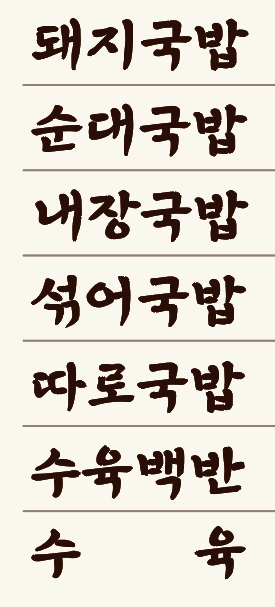 돼지국밥
순대국밥
내장국밥
섞어국밥
따로국밥
수육백반
수 육